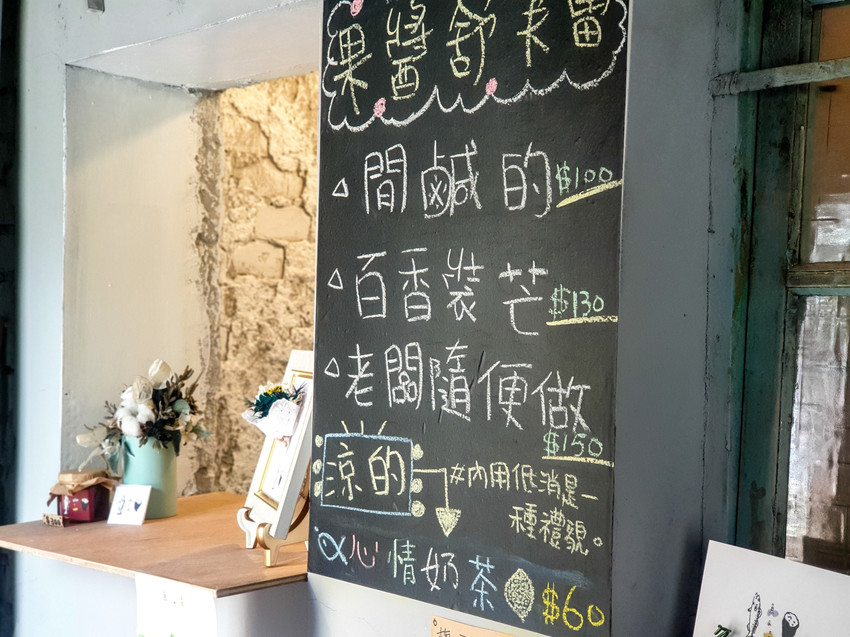 果醬舒芙蕾
△間鹹的 $100
△百香裝芒 $130
△老闆隨便做
$150
涼的
#內用低消是一
種禮貌。
心情奶茶 $60